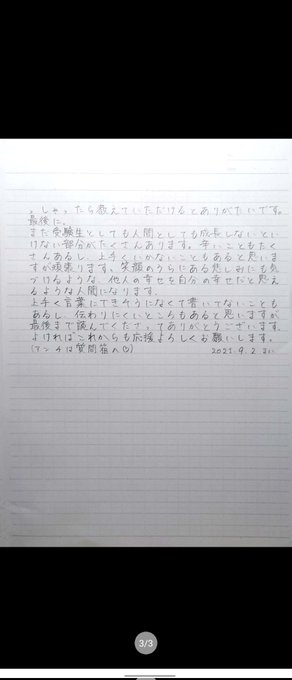 っしゃったら教えていただけるとありがたいです。
最後に。
まだ受験生としても人間としても成長しないとい
けない部分がたくさんあります。辛いこともたく
さんあるし、上手くいかないこともあると思いま
すが頑張ります。笑顔のうらにある悲しみにも気
づけるような、他人の幸せも自分の幸せだと思え
るような人間になります。
上手く言葉にできそうになくて書いてないことも
あるし、伝わりにくいところもあると思いますが
最後まで読んでくださってありがとうございます。
よければこれからも応援よろしくお願いします。
(アンチは質問箱へ☺) 2021.9.2
3/3